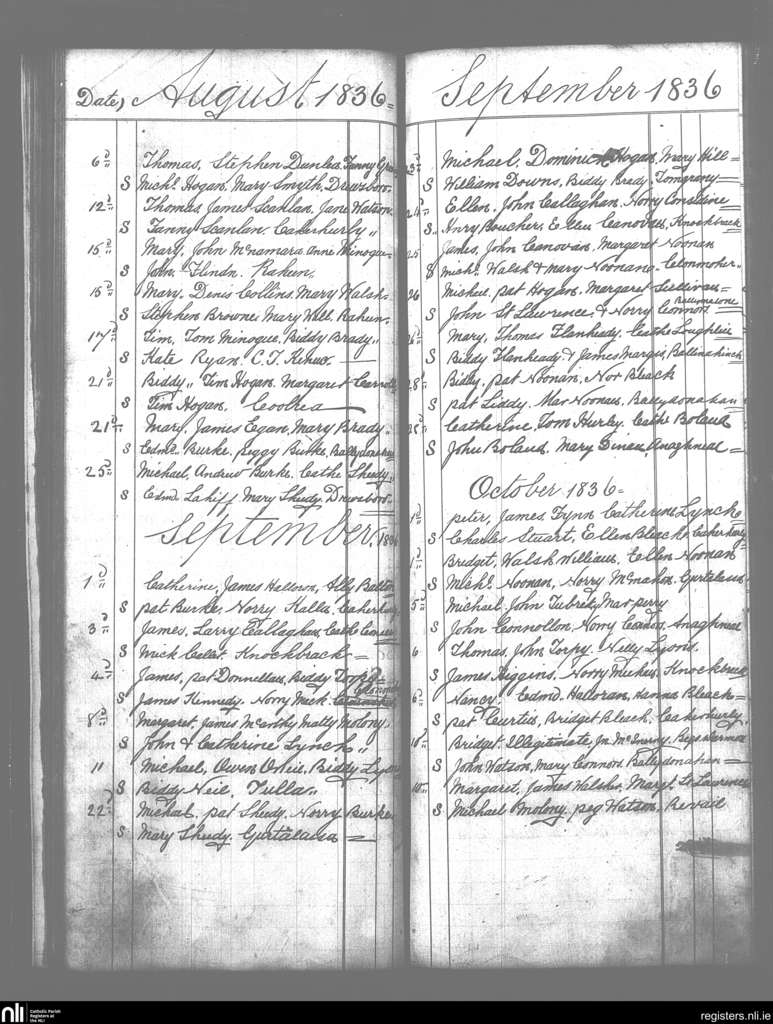 Date, August 1836
6d Thomas, Stephen Dunlea. Fanny
S Michl. Hogan. Mary Smyth. Drewsboro.
12d Thomas James Scanlan, Jane Watson
S Fanny Scanlan. Cakerhurly "
15d Mary, John McNamara. Anne Minogue
S John Rahen.
15d Mary, Denis Collins. Mary Walsh.
S Stephen Browne. Mary Rahen.
17d Tim, Tom Minogue. Biddy Brady "
S Kate Ryan. C.T.
21d Biddy " Tim Hogan. Margaret Carroll
S Tim Hogan. Coolrea
21d Mary, James Egan, Mary Brady
S Edmd. Burke. Peggy Burke,
25d Michael, Andrew Burke. Cathe Sheedy
S Edmd Lahiff Mary Sheedy. Drewsboro
September, 1836
1d Catherine, James Halloran, Ally
S pat Burke, Norry Kalla. Cakerhurly
3d James, Larry Callaghan, Cathe
S Mick Knockbrack
4d James, pat Donnellan, Biddy
S James Kennedy. Norry Meek.
8d Margaret, James McCarthy Matty Molony
S John & Catherine Lynch "
11 Michael, Owen ONeil. Biddy
S Biddy Neil, Tulla.
22d Michael, pat Sheedy. Norry Burke
S Mary Sheedy. Gurtaladea
September 1836
23d Michael, Dominick Hogan, Mary Hill
S William Downs, Biddy Brady. Tomgrany
24d Ellen, John Callaghan, Norry Considine
S. Boucher, Ellen Canovan, Knockbrack
25 James, John Canovan, Margaret Noonan
S Michl. Walsh & Mary Noonang. Clonmoher
26 Michael, pat Hogan. Margaret Sullivan
S John St Lawrence, & Norry Connors
Mary, Thomas Flanheady. Cathe Loughlin
S Biddy Flanheady & James Ballinahinch
28d Biddy, pat Noonan, Nor Bleach
S pat Liddy. Mar Noonan, Ballydonahan
Catherine, Tom Hurley. Cathe Boland
S John Boland, Mary Anaghneal
October 1836
1d peter, James, Fynn Catherine Lynch
S Charles Stuart, Ellen Bleach. Cakerhurly
1d Bridget, Walsh William, Ellen Noonan
S Michl. Noonan, Norry McMahon. Gurtaladea
5d Michael, John Tubredy, Mar perry
S John Connollon, Norry Anaghneal
6 Thomas, John Torpy, Nelly Lyons.
S James Higgins, Norry Meehan, Knockbrack
6d Nancy, Edmd. Halloran, Hanna Bleach
S pat Curtis, Bridget Bleach, Cakerhurly
10d Bridget. Illegitimate, Jn McInerny.
S John Watson, Mary Connors Ballydonahan
10d Margaret, James Walsh, Mary St Lawrence
S Michael Molony, peg Watson, Bevaid
nli Catholic Parish Registers at the NLI
registers.nli.ie